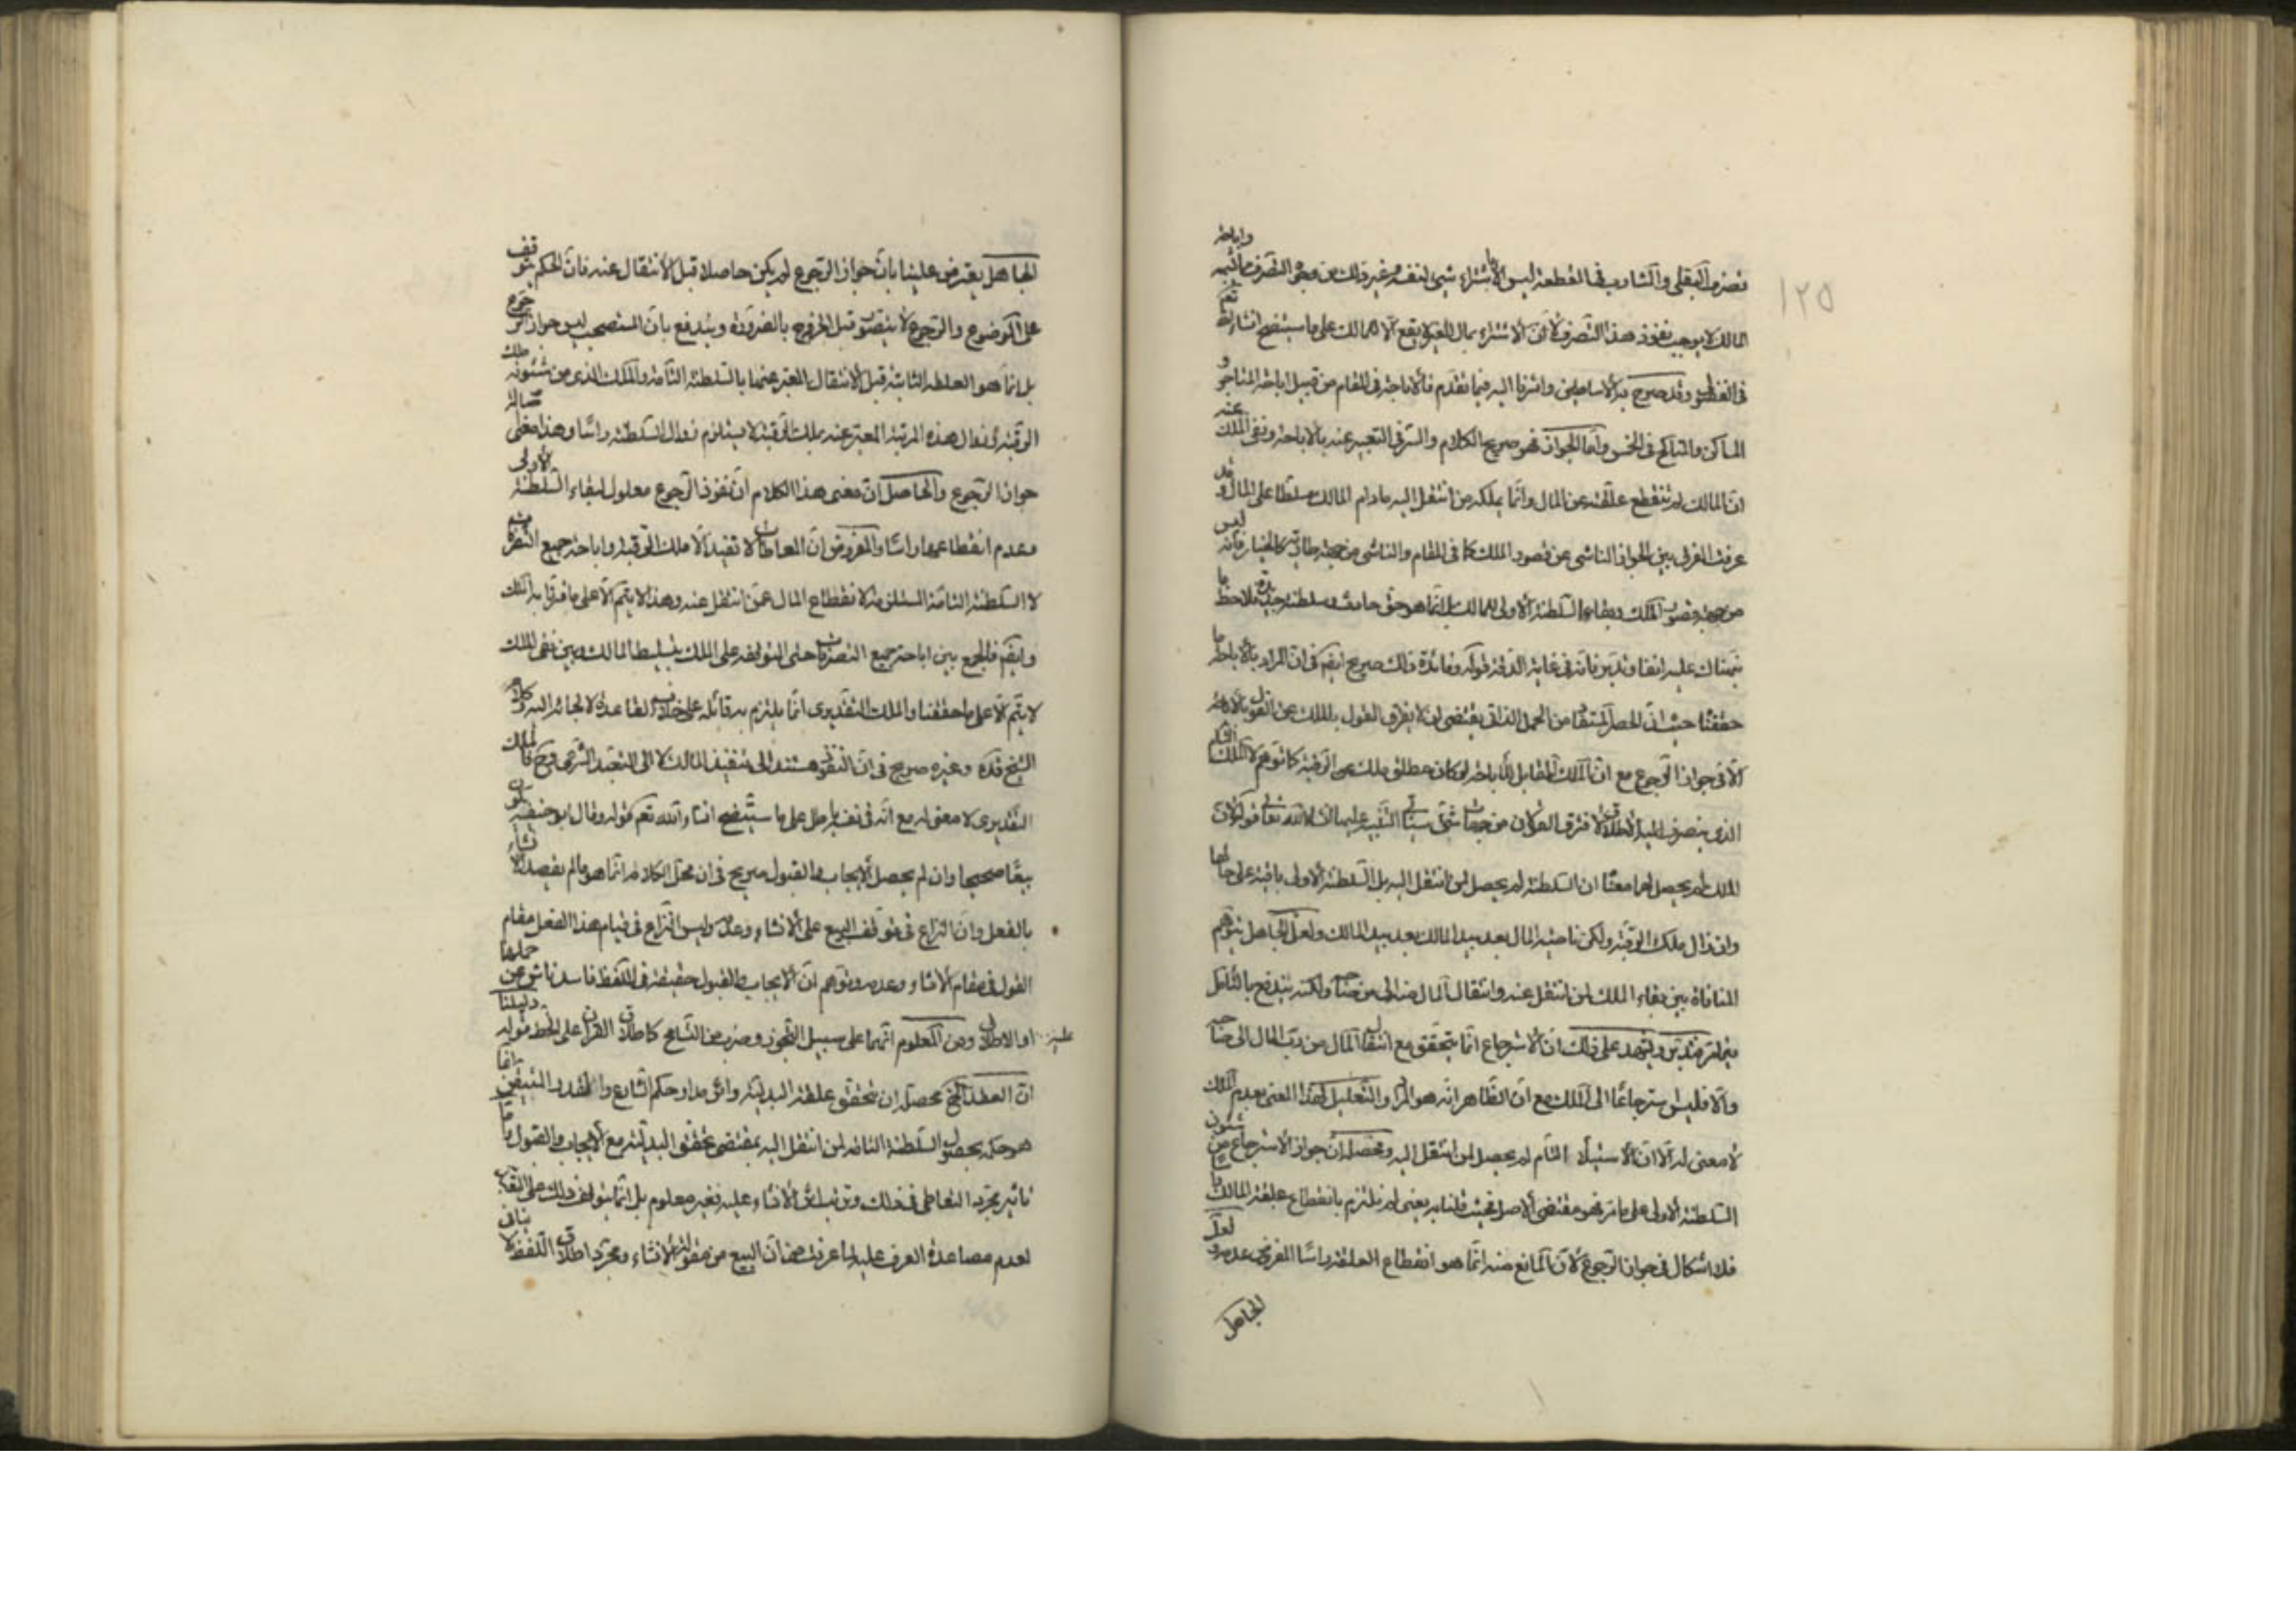 ١٢٥
تصرف البقلي والشارب في القطعة ليس الا اشتراء شيء لنفسه وغير ذلك من وجوه التصرف واباحة
المالك لا يوجب نفوذ هذا التصرف لان الاشتراء بمال الغير لا يقع الا للمالك على ما سيتضح انشاء الله تعم
في الفضولي وقد صرح به الاساطين واشرنا اليه فيما تقدم فالاباحة في المقام من قبيل اباحة المناجر و
المساكن والمناكح في الخمس واما الجواز فهو صريح الكلام والسر في التعبير عنه بالاباحة ونفى الملك عنه
ان المالك لم تنقطع علقته عن المال وانما يملكه من انتقل اليه ما دام المالك مسلطا على المال وقد
عرفت الفرق بين الجواز الناشي عن قصور الملك كما في المقام والناشي من جهة طارية كالخيار فانه ليس
من جهة قصور الملك وبقاء السلطنة الاولى للمالك بل انما هو حق حادث وسلطنة جديدة فلاحظ ما
نبهناك عليه انفا وتدبر فانه في غاية الدقة قوله وفائدة ذلك صريح ايضا في ان المراد بالاباحة ما
حققنا حيث ان الحصر المستفاد من الجمل الذاتي يقتضي ان لا يفرق القول بالملك عن القول بالاباحة
الا في جواز الرجوع مع ان الملك المقابل للاباحة لو كان مطلق ملك عين الرقبة كما توهم لا الملك التام
الذي ينصرف اليه الاطلاق لافترق القولان من جهات شتى سياتي التنبيه عليها انشاء الله تعالى قوله لان
الملك لم يحصل لهما معناه ان السلطنة لم يحصل لمن انتقل اليه بل السلطنة الاولى باقية على حالها
وان زال ملك الرقبة ولكن ناصية المال بعد بيد المالك بعد بيد المالك ولعل الجاهل يتوهم
المنافاة بين بقاء الملك لمن انتقل عنه وانتقال المال منه الى من صاحبه ولكنه يندفع بالتامل
فيما مر فتدبر ويشهد على ذلك ان الاسترجاع انما يتحقق مع انتقال المال من رب المال الى صاحبه
والا فليس استرجاعا الى الملك مع ان الظاهر انه هو المراد والتعليل لهذا المعنى بعدم الملك
لا معنى له الا ان الاستيلاء التام لم يحصل لمن انتقل اليه ومحصله ان جواز الاسترجاع من شئون
السلطنة الاولى على ما مر فهو مقتضى الاصل فحيث قلنا به يعنى لم نلتزم بانقطاع علقة المالك راسا
فلا اشكال في جواز الرجوع لان المانع منه انما هو انقطاع العلقة راسا المفروض عدمه ولعل
الجاهل
الجاهل يعترض علينا بان جواز الرجوع لم يكن حاصلا قبل الانتقال عنه فان الحكم يتوقف
على الموضوع والرجوع لا يتصور قبل الخروج بالضرورة ويندفع بان المستصحب ليس جواز الرجوع
بل انما هو العلقة الثابتة قبل الانتقال المعبر عنها بالسلطنة التامة والملك الذي من شئونه ملك
الرقبة فزوال هذه المرتبة المعبر عنه بملك الرقبة لا يستلزم زوال السلطنة راسا وهذا معنى اصالة
جواز الرجوع والحاصل ان معنى هذا الكلام ان نفوذ الرجوع معلول لبقاء السلطنة الاولى
وعدم انقطاعها راسا والمفروض ان المعاطات لا تفيد الا ملك الرقبة واباحة جميع التصرفات
لا السلطنة التامة المستلزمة لانقطاع المال عمن انتقل عنه وهذا لا يتم الا على ما فرقنا به الملك
وايضا فالجمع بين اباحة جميع التصرفات حتى المتوقفة على الملك بتسليط المالك وبين نفى الملك
لا يتم الا على ما حققنا والملك التقديري انما يلتزم به قائله على خلاف القاعدة لالجائه اليه وكلام
الشيخ قده وغيره صريح في ان النفوذ مستند الى تنفيذ المالك لا الى التعبد الشرعي وح فالملك
التقديري لا معنى له مع انه في نفسه باطل على ما سيتضح انشاء الله تعم قوله وقال ابو حنيفة يكون
بيعا صحيحا وان لم يحصل الايجاب والقبول صريح في ان محل الكلام انما هو ما لم يقصد الانشاء
بالفعل وان النزاع في توقف البيع على الانشاء وعدمه وليس النزاع في قيام هذا الفعل مقام
القول في مقام الانشاء وعدمه وتوهم ان الايجاب والقبول حقيقة في اللفظ فاسد ناش عن حملها
عليه او الاطلاق ومن المعلوم انهما على سبيل التجوز وضرب من التسامح كاطلاق القران على الخط قوله دليلنا
ان العقد الخ محصله ان تحقق علقة البدلية واثره مدار حكم الشارع والقدر المتيقن انما
هو حكمه بحصول السلطنة التامة لمن انتقل اليه بمقتضى تحقق البدلية مع الايجاب والقبول واما
تاثير مجرد التعاطي في ذلك وترتب اثر الانشاء عليه فغير معلوم بل انما يتوقف ذلك على
لعدم مساعدة العرف عليه لما عرفت من ان البيع من مقولة الانشاء ومجرد اطلاق اللفظ لا ينافي